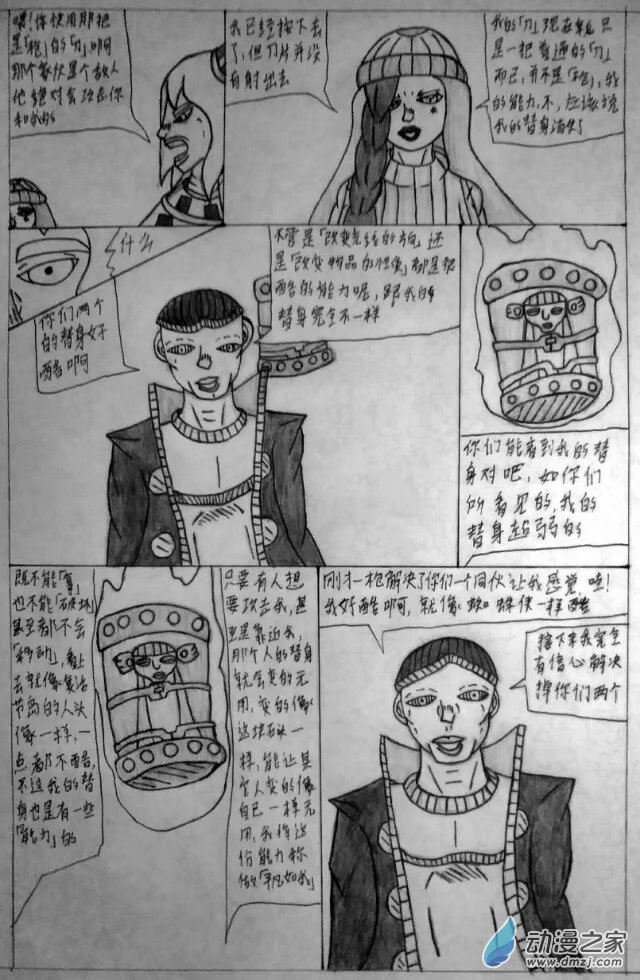 喂！你使用那把
是「枪」的「刀」啊
那个家伙是个敌人
他绝对会攻击你
和我的
我已经按下去
了，但刀片并没
有射出去
我的「刀」现在就只
是一把普通的「刀」
而已，并不是「枪」，我
的能力，不，应该说
我的替身消失了
什么
你们两个
的替身好
酷啊
不管是「改变的狗，还
是「改变物品的性质」都是很
酷的能力呢，跟我的
替身完全不一样
你们能看到我的替
身对吧，如你们
所看见的，我的
替身超弱的
既不能「拿」
也不能「破坏」
甚至都不会
「移动」，看上
去就像复活
节岛的人头
像一样，一
点都不酷，
不过我的替
身也是有一些
「能力」的
只要有人想
要攻击我，甚
至是靠近我，
那个人的替身
就会变的无
用，变的像
这块石头一
样，能让其
它人变的像
自己一样无
用，我将这
份能力称
做「平凡如我」
刚才一枪解决了你们一个同伙让我感觉 哇！
我好酷啊，就像蜘蛛侠一样酷
接下来我完全
有信心解决
掉你们两个
动漫之家
www.dmzj.com